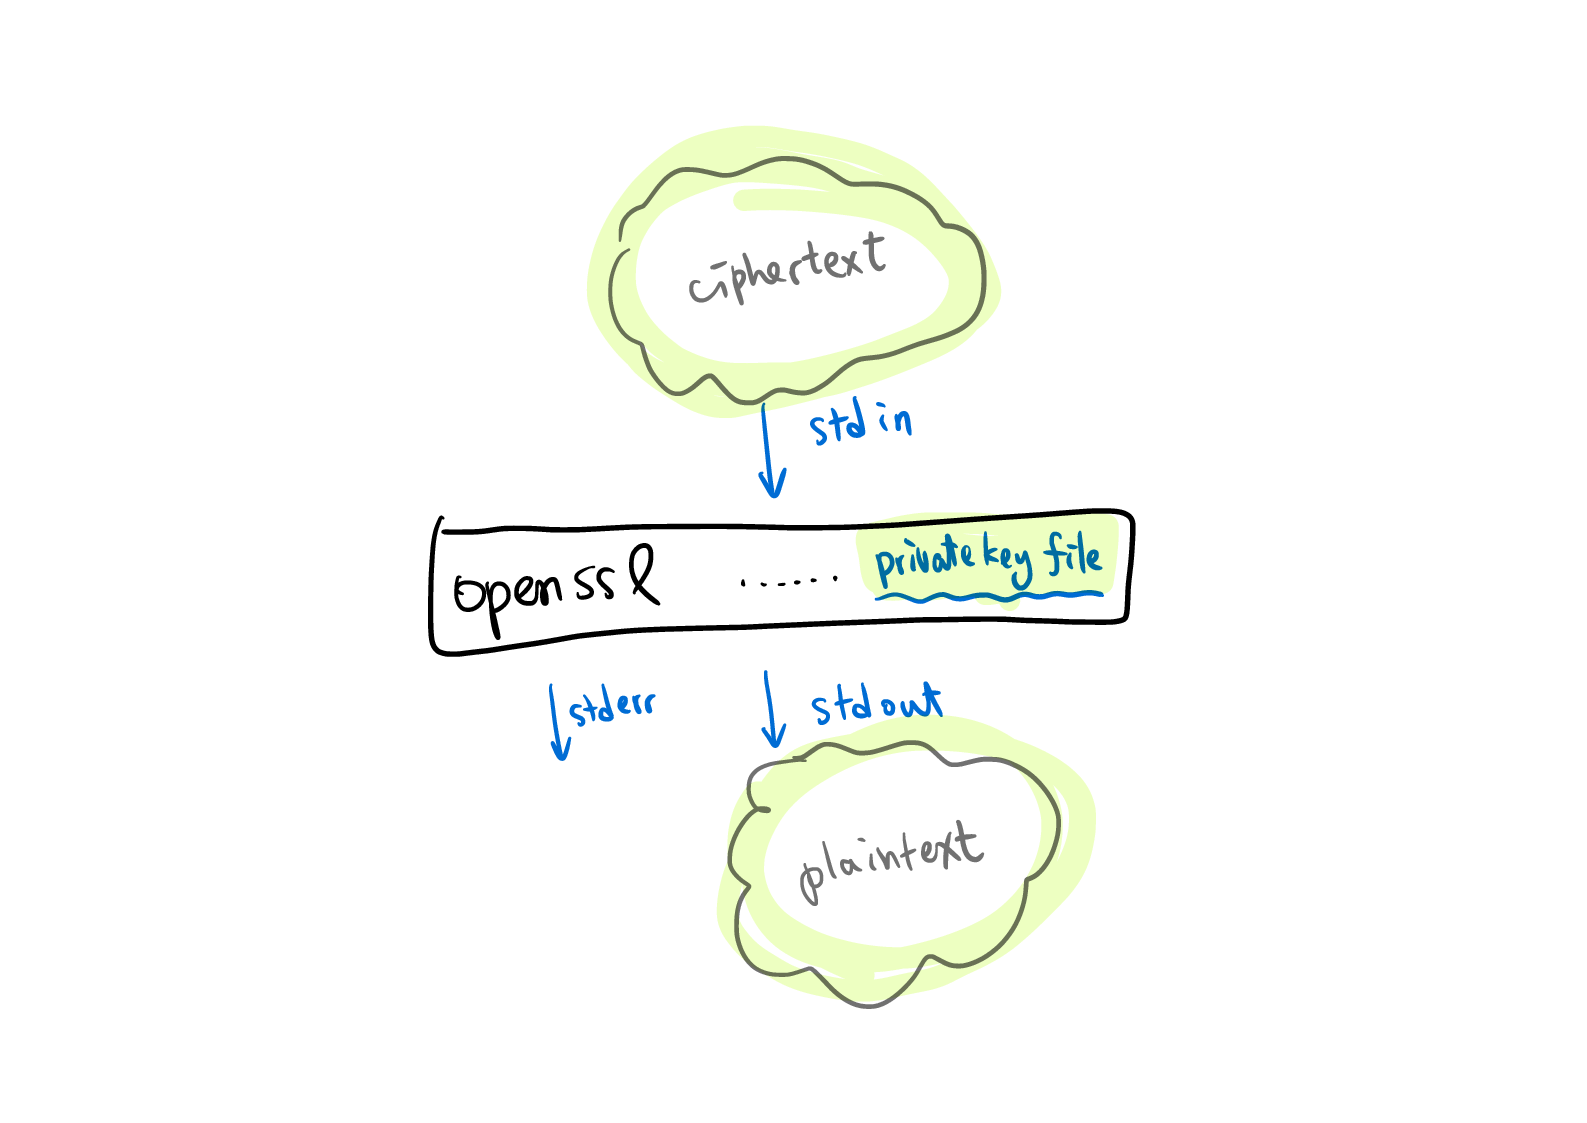 ciphertext
stdin
openssl ...... private key file
stderr
stdout
plaintext